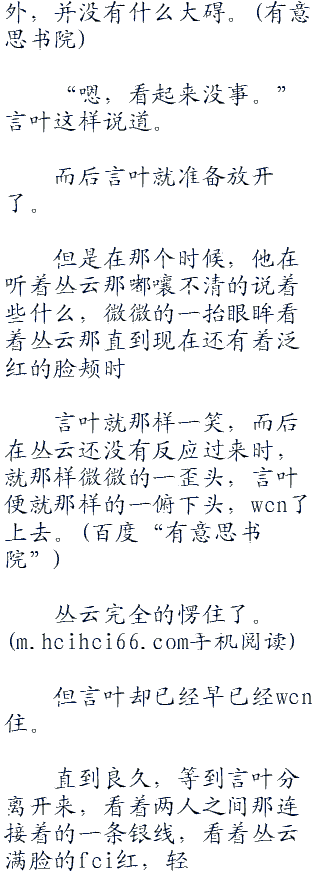 外，并没有什么大碍。(有意
思书院)
“嗯，看起来没事。”
言叶这样说道。
而后言叶就准备放开
了。
但是在那个时候，他在
听着丛云那嘟嚷不清的说着
些什么，微微的一抬眼眸看
着丛云那直到现在还有着泛
红的脸颊时
言叶就那样一笑，而后
在丛云还没有反应过来时，
就那样微微的一歪头，言叶
便就那样的一俯下头，wcn了
上去。(百度“有意思书
院”)
丛云完全的愣住了。
(m.hcihci66.com手机阅读)
但言叶却已经早已经wcn
住。
直到良久，等到言叶分
离开来，看着两人之间那连
接着的一条银线，看着丛云
满脸的fci红，轻